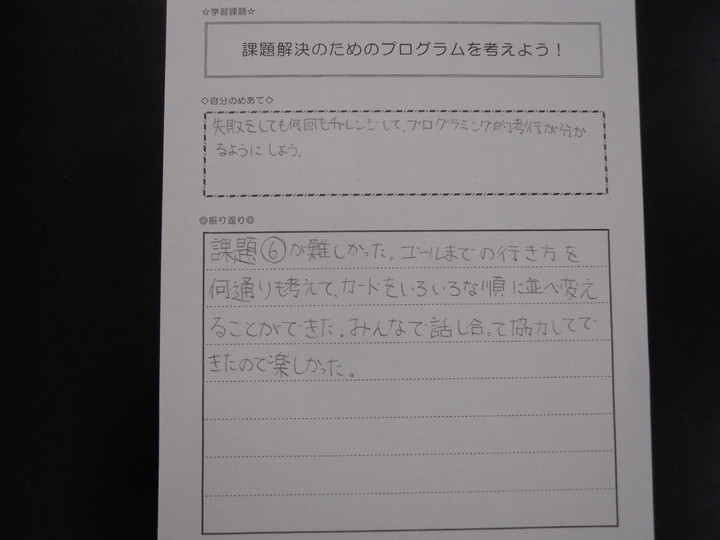 ☆学習課題☆
課題解決のためのプログラムを考えよう！
◇自分のめあて◇
失敗をしても何回もチャレンジして、プログラミング的考行が分か
るようにしよう。
◎振り返り◎
課題⑥が難しかった。ゴールまでの行き方を
何通りも考えて、カードをいろいろな順に並べ変え
ることができた。みんなで話し合って協力してで
きたので楽しかった。